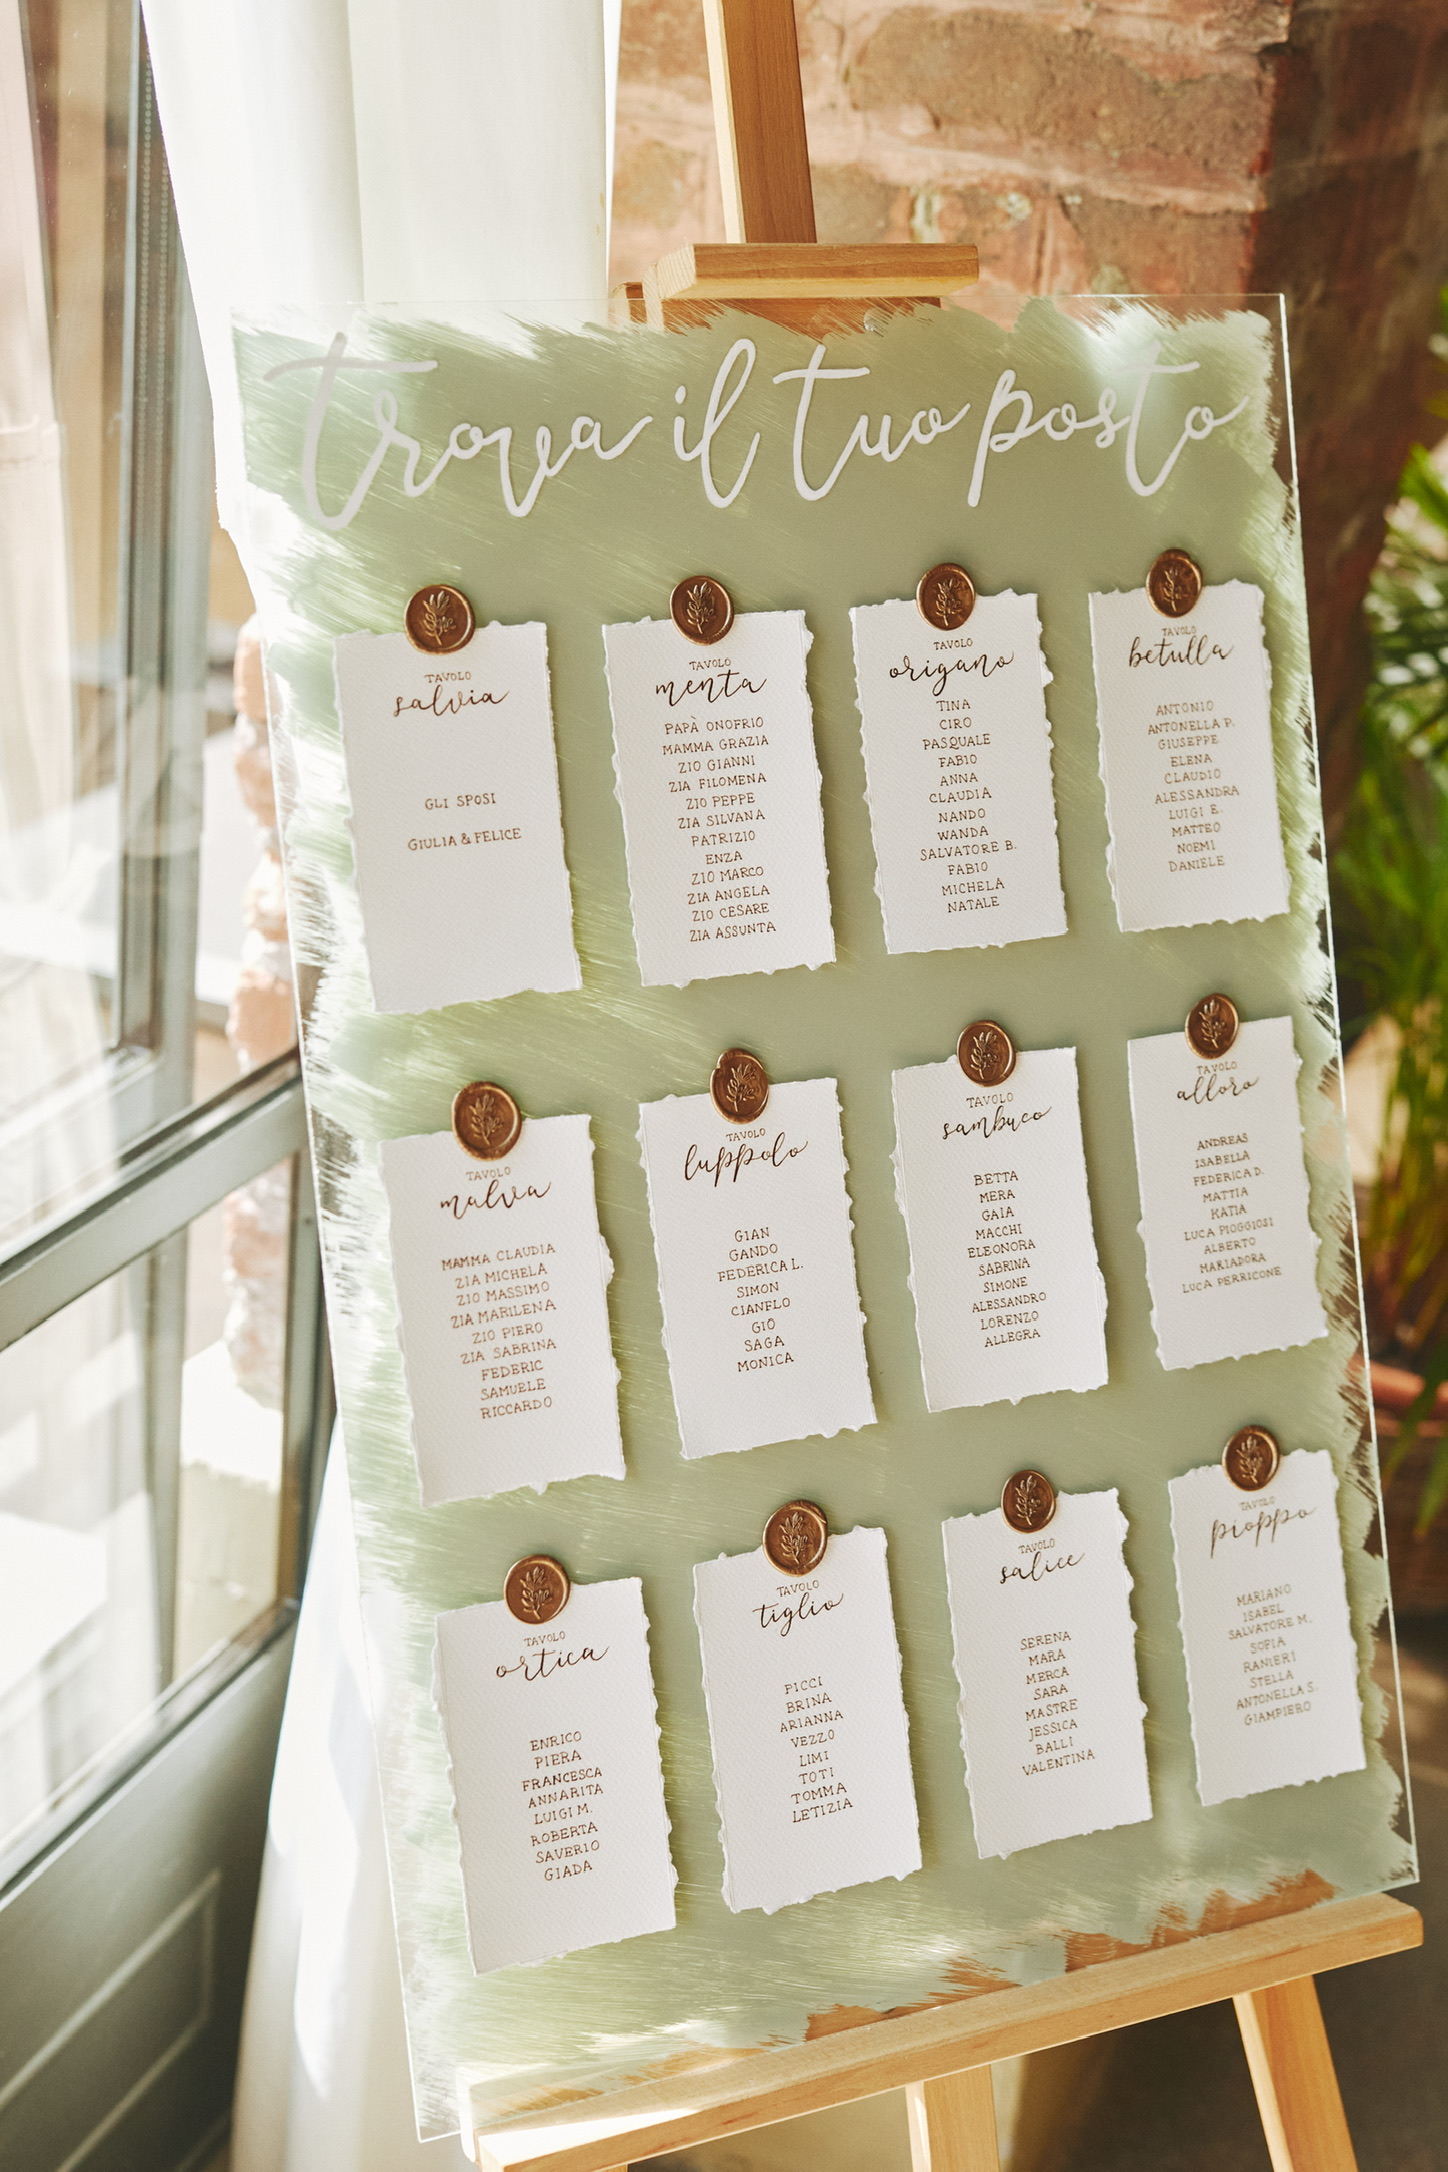 trova il tuo posto
TAVOLO
salvia
GLI SPOSI
GIULIA & FELICE
TAVOLO
menta
PAPÀ ONOFRIO
MAMMA GRAZIA
ZIO GIANNI
ZIA FILOMENA
ZIO PEPPE
ZIA SILVANA
PATRIZIO
ENZA
ZIO MARCO
ZIA ANGELA
ZIO CESARE
ZIA ASSUNTA
TAVOLO
origano
TINA
CIRO
PASQUALE
FABIO
ANNA
CLAUDIA
NANDO
WANDA
SALVATORE B.
FABIO
MICHELA
NATALE
TAVOLO
betulla
ANTONIO
ANTONELLA P.
GIUSEPPE
ELENA
CLAUDIO
ALESSANDRA
LUIGI E.
MATTEO
NOEMI
DANIELE
TAVOLO
malva
MAMMA CLAUDIA
ZIA MICHELA
ZIO MASSIMO
ZIA MARILENA
ZIO PIERO
ZIA SABRINA
FEDERIC
SAMUELE
RICCARDO
TAVOLO
luppolo
GIAN
GANDO
FEDERICA L.
SIMON
CIANFLO
GIÒ
SAGA
MONICA
TAVOLO
sambuco
BETTA
MERA
GAIA
MACCHI
ELEONORA
SABRINA
SIMONE
ALESSANDRO
LORENZO
ALLEGRA
TAVOLO
alloro
ANDREAS
ISABELLA
FEDERICA D.
MATTIA
KATIA
LUCA PIOGGIOSI
ALBERTO
MARIADORA
LUCA PERRICONE
TAVOLO
ortica
ENRICO
PIERA
FRANCESCA
ANNARITA
LUIGI M.
ROBERTA
SAVERIO
GIADA
TAVOLO
tiglio
PICCI
BRINA
ARIANNA
VEZZO
LIMI
TOTI
TOMMA
LETIZIA
TAVOLO
salice
SERENA
MARA
MERCA
SARA
MASTRE
JESSICA
BALLI
VALENTINA
TAVOLO
pioppo
MARIANO
ISABEL
SALVATORE M.
SOFIA
RANIERI
STELLA
ANTONELLA S.
GIAMPIERO